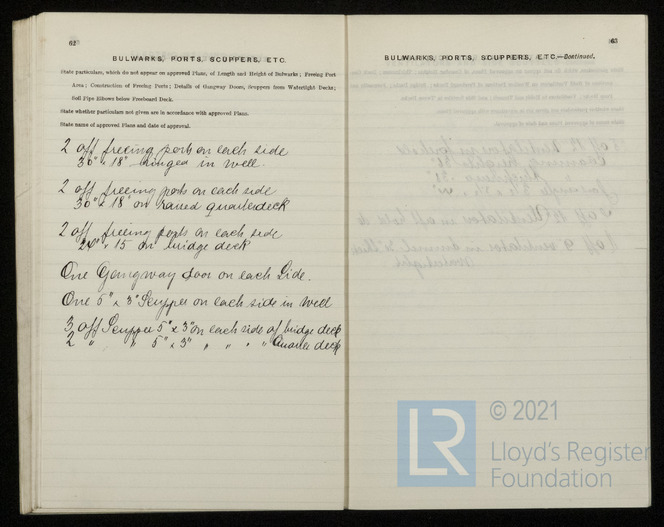 62
BULWARKS, PORTS, SCUPPERS, ETC.
State particulars, which do not appear on approved Plans, of Length and Height of Bulwarks; Freeing Port
Area; Construction of Freeing Ports; Details of Gangway Doors, Scuppers from Watertight Decks;
Soil Pipe Elbows below Freeboard Deck.
State whether particulars not given are in accordance with approved Plans.
State name of approved Plans and date of approval.
2 off freeing ports on each side
30" x 18" hinged in well
2 off freeing ports on each side
30" x 18" on raised quarterdeck
2 off freeing ports on each side
24" x 15 on bridge deck
One Gangway door on each Side.
One 5" x 3" Scupper on each side in well
3 off Scupper 5" x 3" on each side of bridge deck
2 " " 5" x 3" " " " " Quarter deck
63
BULWARKS, PORTS, SCUPPERS, ETC.—Continued.
LR
© 2021
Lloyd's Register
Foundation